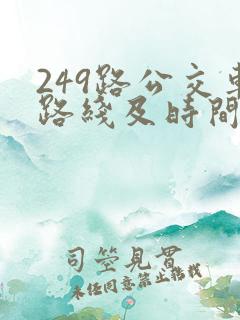 249路公交車
路綫及時間
司筮見貫
未经同意禁止转载